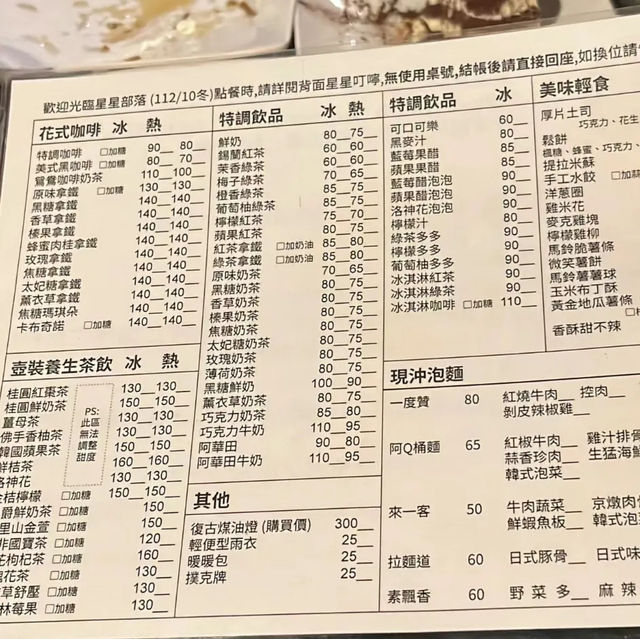 歡迎光臨星星部落 (112/10冬)點餐時,請詳閱背面星星叮嚀,無使用桌號,結帳後請直接回座,如換位請
花式咖啡 冰 熱
特調咖啡 □加糖 90__ 80__
美式黑咖啡 □加糖 80__ 70__
鴛鴦咖啡奶茶 110__100__
原味拿鐵 □加糖 130__130__
黑糖拿鐵 140__140__
香草拿鐵 140__140__
榛果拿鐵 140__140__
蜂蜜肉桂拿鐵 140__140__
玫瑰拿鐵 140__140__
焦糖拿鐵 140__140__
太妃糖拿鐵 140__140__
薰衣草拿鐵 140__140__
焦糖瑪琪朵 140__140__
卡布奇諾 □加糖 140__140__
壺裝養生茶飲 冰 熱
桂圓紅棗茶 130__130__
桂圓鮮奶茶 150__150__
薑母茶 130__130__
佛手香柚茶 130__130__
韓國蘋果茶 150__150__
鮮桔茶 160__160__
洛神花 130__130__
金桔檸檬 □加糖 150__150__
爵鮮奶茶 □加糖 150__
里山金萱 □加糖 150__
非國寶茶 □加糖 120__
花枸杞茶 □加糖 160__
花茶 □加糖 130__
草舒壓 □加糖 130__
林莓果 □加糖 130__
PS:
此區
無法
調整
甜度
特調飲品 冰 熱
鮮奶 80__75__
錫蘭紅茶 60__60__
茉香綠茶 60__60__
梅子綠茶 70__65__
橙香綠茶 85__75__
葡萄柚綠茶 85__75__
檸檬紅茶 75__70__
蘋果紅茶 85__75__
紅茶拿鐵 □加奶油 85__80__
綠茶拿鐵 □加奶油 85__80__
原味奶茶 70__65__
黑糖奶茶 80__75__
香草奶茶 80__75__
榛果奶茶 80__75__
焦糖奶茶 80__75__
太妃糖奶茶 80__75__
玫瑰奶茶 80__75__
薄荷奶茶 80__75__
黑糖鮮奶 100__90__
薰衣草奶茶 80__75__
巧克力奶茶 85__80__
巧克力牛奶 110__95__
阿華田 90__80__
阿華田牛奶 110__95__
其他
復古煤油燈 (購買價) 300__
輕便型雨衣 25__
暖暖包 25__
撲克牌 25__
特調飲品 冰
可口可樂 60__
黑麥汁 80__
藍莓果醋 85__
蘋果果醋 85__
藍莓醋泡泡 90__
蘋果醋泡泡 90__
洛神花泡泡 90__
檸檬汁 80__
綠茶多多 90__
檸檬多多 90__
葡萄柚多多 90__
冰淇淋紅茶 90__
冰淇淋綠茶 90__
冰淇淋咖啡 □加糖 110__
美味輕食
厚片土司
巧克力、花生
鬆餅
楓糖、蜂蜜、巧克力、
提拉米蘇
手工水餃 □加
洋蔥圈
雞米花
麥克雞塊
檸檬雞柳
馬鈴脆薯條
微笑薯餅
馬鈴薯薯球
玉米布丁酥
黃金地瓜薯條
香酥甜不辣
現沖泡麵
一度贊 80 紅燒牛肉__ 控肉__
剝皮辣椒雞__
阿Q桶麵 65 紅椒牛肉__ 雞汁排骨
蒜香珍肉__ 生猛海鮮
韓式泡菜__
來一客 50 牛肉蔬菜__ 京燉肉骨
鮮蝦魚板__ 韓式泡
拉麵道 60 日式豚骨__ 日式味
素飄香 60 野 菜 多__ 麻 辣